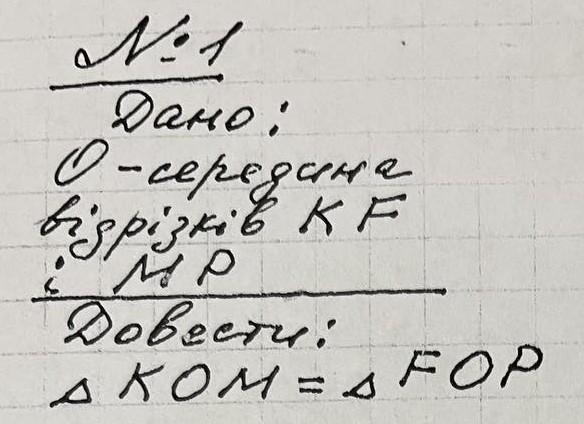 №1
Дано:
О - середина
відрізків KF
і MP
Довести:
△ KOM = △ FOP